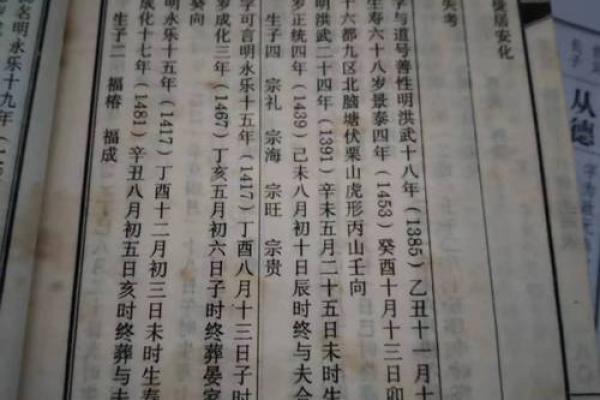 从德
居安化
失考
字与道号善性明洪武十八年（1385）乙丑十一月十
生寿六十八岁景泰四年（1453）癸酉十月十三日卯
十六都九区北脑塘伏栗山虎形丙山壬向
明洪武二十四年（1391）辛未五月二十五日未时生
岁正统四年（1439）己未八月初十日辰时终与夫合
生子四 宗礼 宗海 宗旺 宗贵
字可言明永乐十五年（1417）丁酉八月十三日子时
岁成化三年（1467）丁亥五月初六日子时终葬晏家
癸向
明永乐十五年（1417）丁酉十二月初三日未时生寿
成化十七年（1481）辛丑八月初五日亥时终葬与夫
生子二 福椿 福成
名明永乐十九年